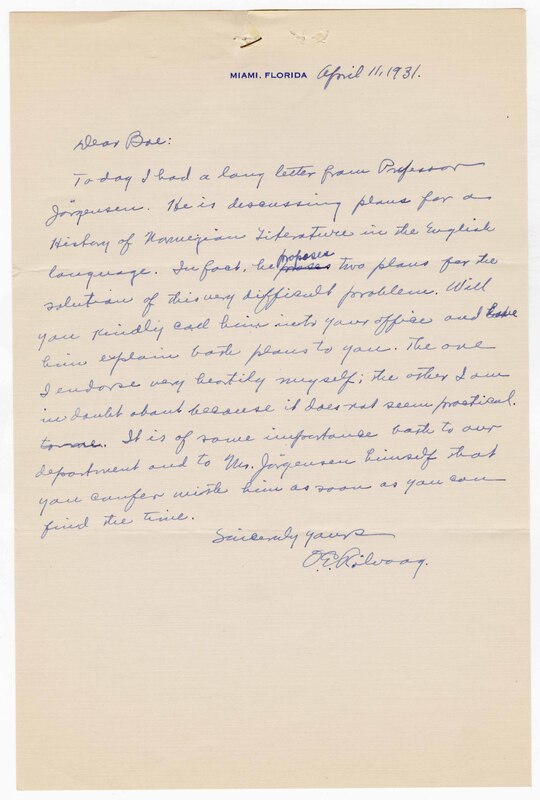 MIAMI, FLORIDA April 11, 1931.
Dear Boe:
Today I had a long letter from Professor
Jörgensen. He is discussing plans for a
History of Norwegian Literature in the English
language. In fact, he proposes two plans for the
solution of this very difficult problem. Will
you kindly call him into your office and have
him explain both plans to you. The one
I endorse very heartily myself; the other I am
in doubt about because it does not seem practical.
to me. It is of some importance both to our
department and to Mr. Jörgensen himself that
you confer with him as soon as you can
find the time.
Sincerely yours
O.E. Rölvaag.